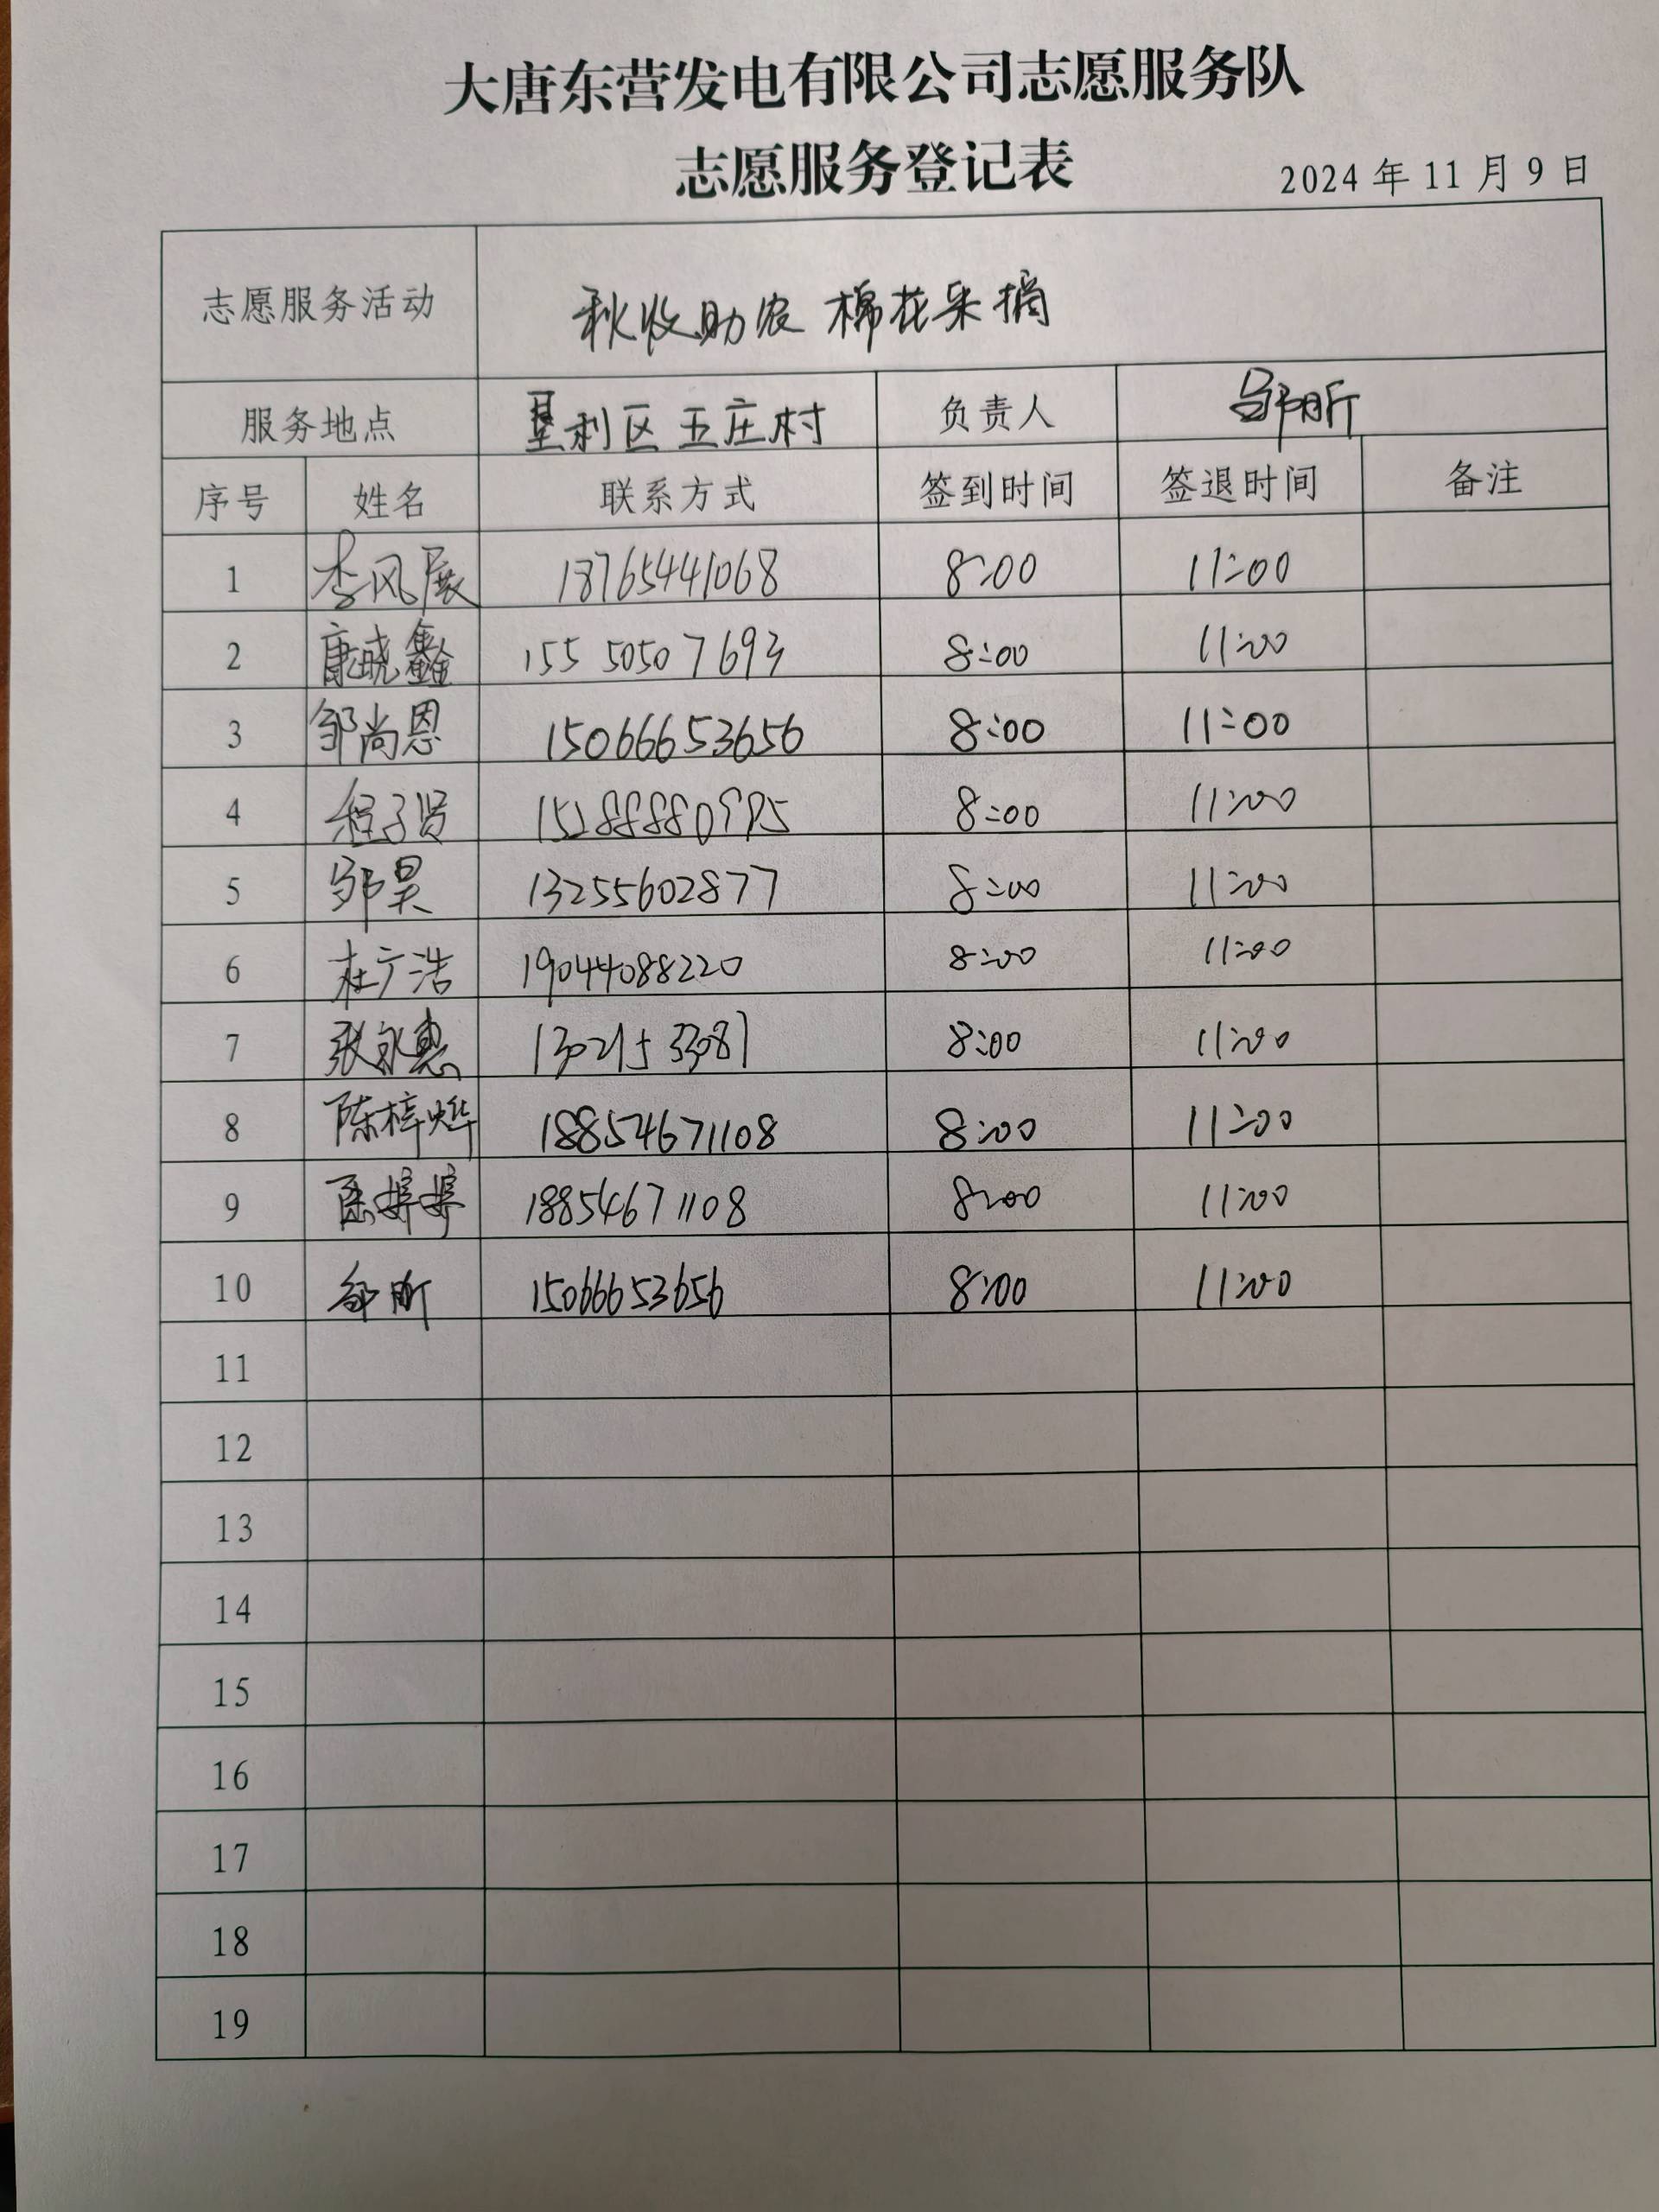 大唐东营发电有限公司志愿服务队
志愿服务登记表
2024年11月9日
志愿服务活动 秋收助农 棉花采摘
服务地点 垦利区五庄村 负责人 邹昕
序号 姓名 联系方式 签到时间 签退时间 备注
1 李风展 18765441068 8:00 11:00
2 康晓鑫 155 5050 7693 8:00 11:00
3 邹尚恩 15066653656 8:00 11:00
4 程子贤 15288880995 8:00 11:00
5 邹昊 13255602877 8:00 11:00
6 杜广浩 19044088220 8:00 11:00
7 张永惠 13021533081 8:00 11:00
8 陈梓烨 18854671108 8:00 11:00
9 18854671108 8:00 11:00
10 邹昕 15066653656 8:00 11:00
11
12
13
14
15
16
17
18
19